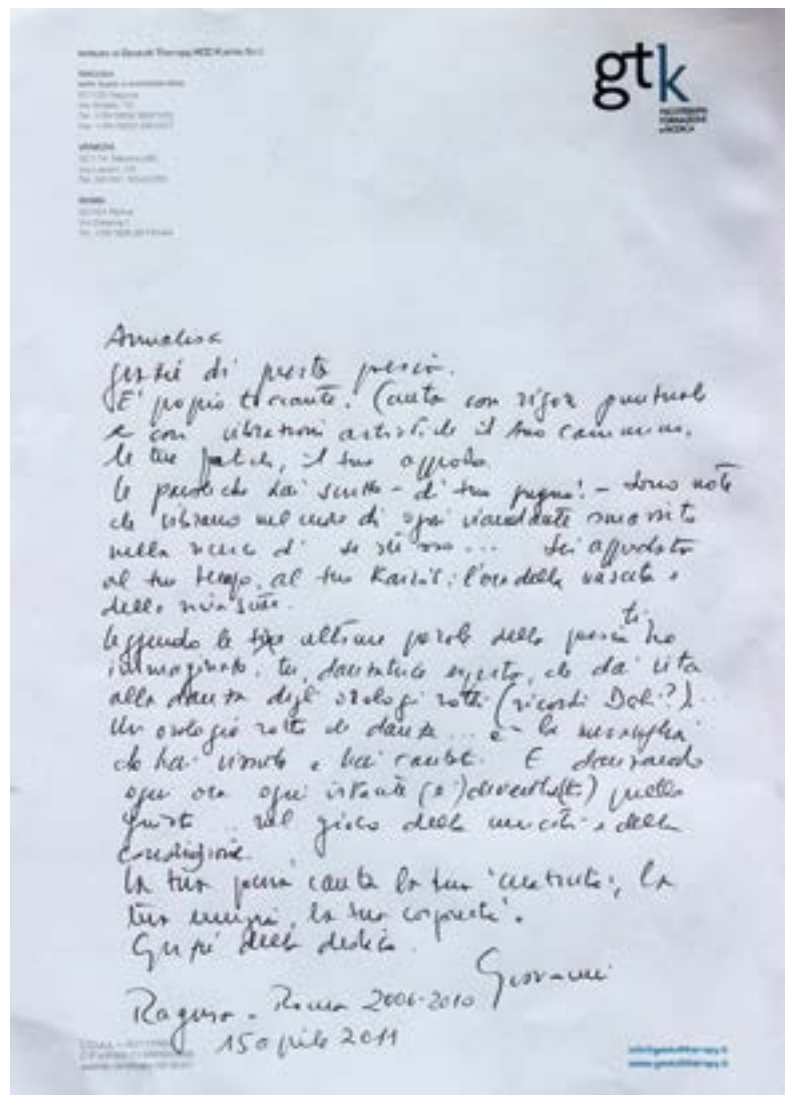 Istituto di Gestalt Therapy HCC Kairòs S.r.l.
gtk
PSICOTERAPIA
FORMAZIONE
e RICERCA
RAGUSA
VENEZIA
ROMA
Annalisa
grazie di questa poesia.
E' proprio toccante. Canta con rigore puntuale
e con vibrazioni artistiche il tuo cammino,
le tue fatiche, il tuo approdo.
Le parole che hai scritto - di tuo pugno! - sono note
che vibrano nel cuore di ogni viandante smarrito
nella ricerca di se stesso... Sei approdata
al tuo tempo, al tuo Kairòs: l'ora della nascita e
della rinascita.
Leggendo le ultime parole della poesia ti ho
immaginato: tu, danzatrice esperta, che dà vita
alla danza degli orologi rotti (ricordi Dalì?)...
Un orologio rotto che danza... è la meraviglia
che hai vissuto e hai cantato. E danzando
ogni ora ogni istante quella
giusta nel gioco della unicità e della
condivisione.
La tua poesia canta la tua creatività, la
tua energia, la tua corporeità.
Grazie della dedica.
Giovanni
Ragusa - Roma 2006-2010
15 aprile 2011
info@gestalttherapy.it
www.gestalttherapy.it